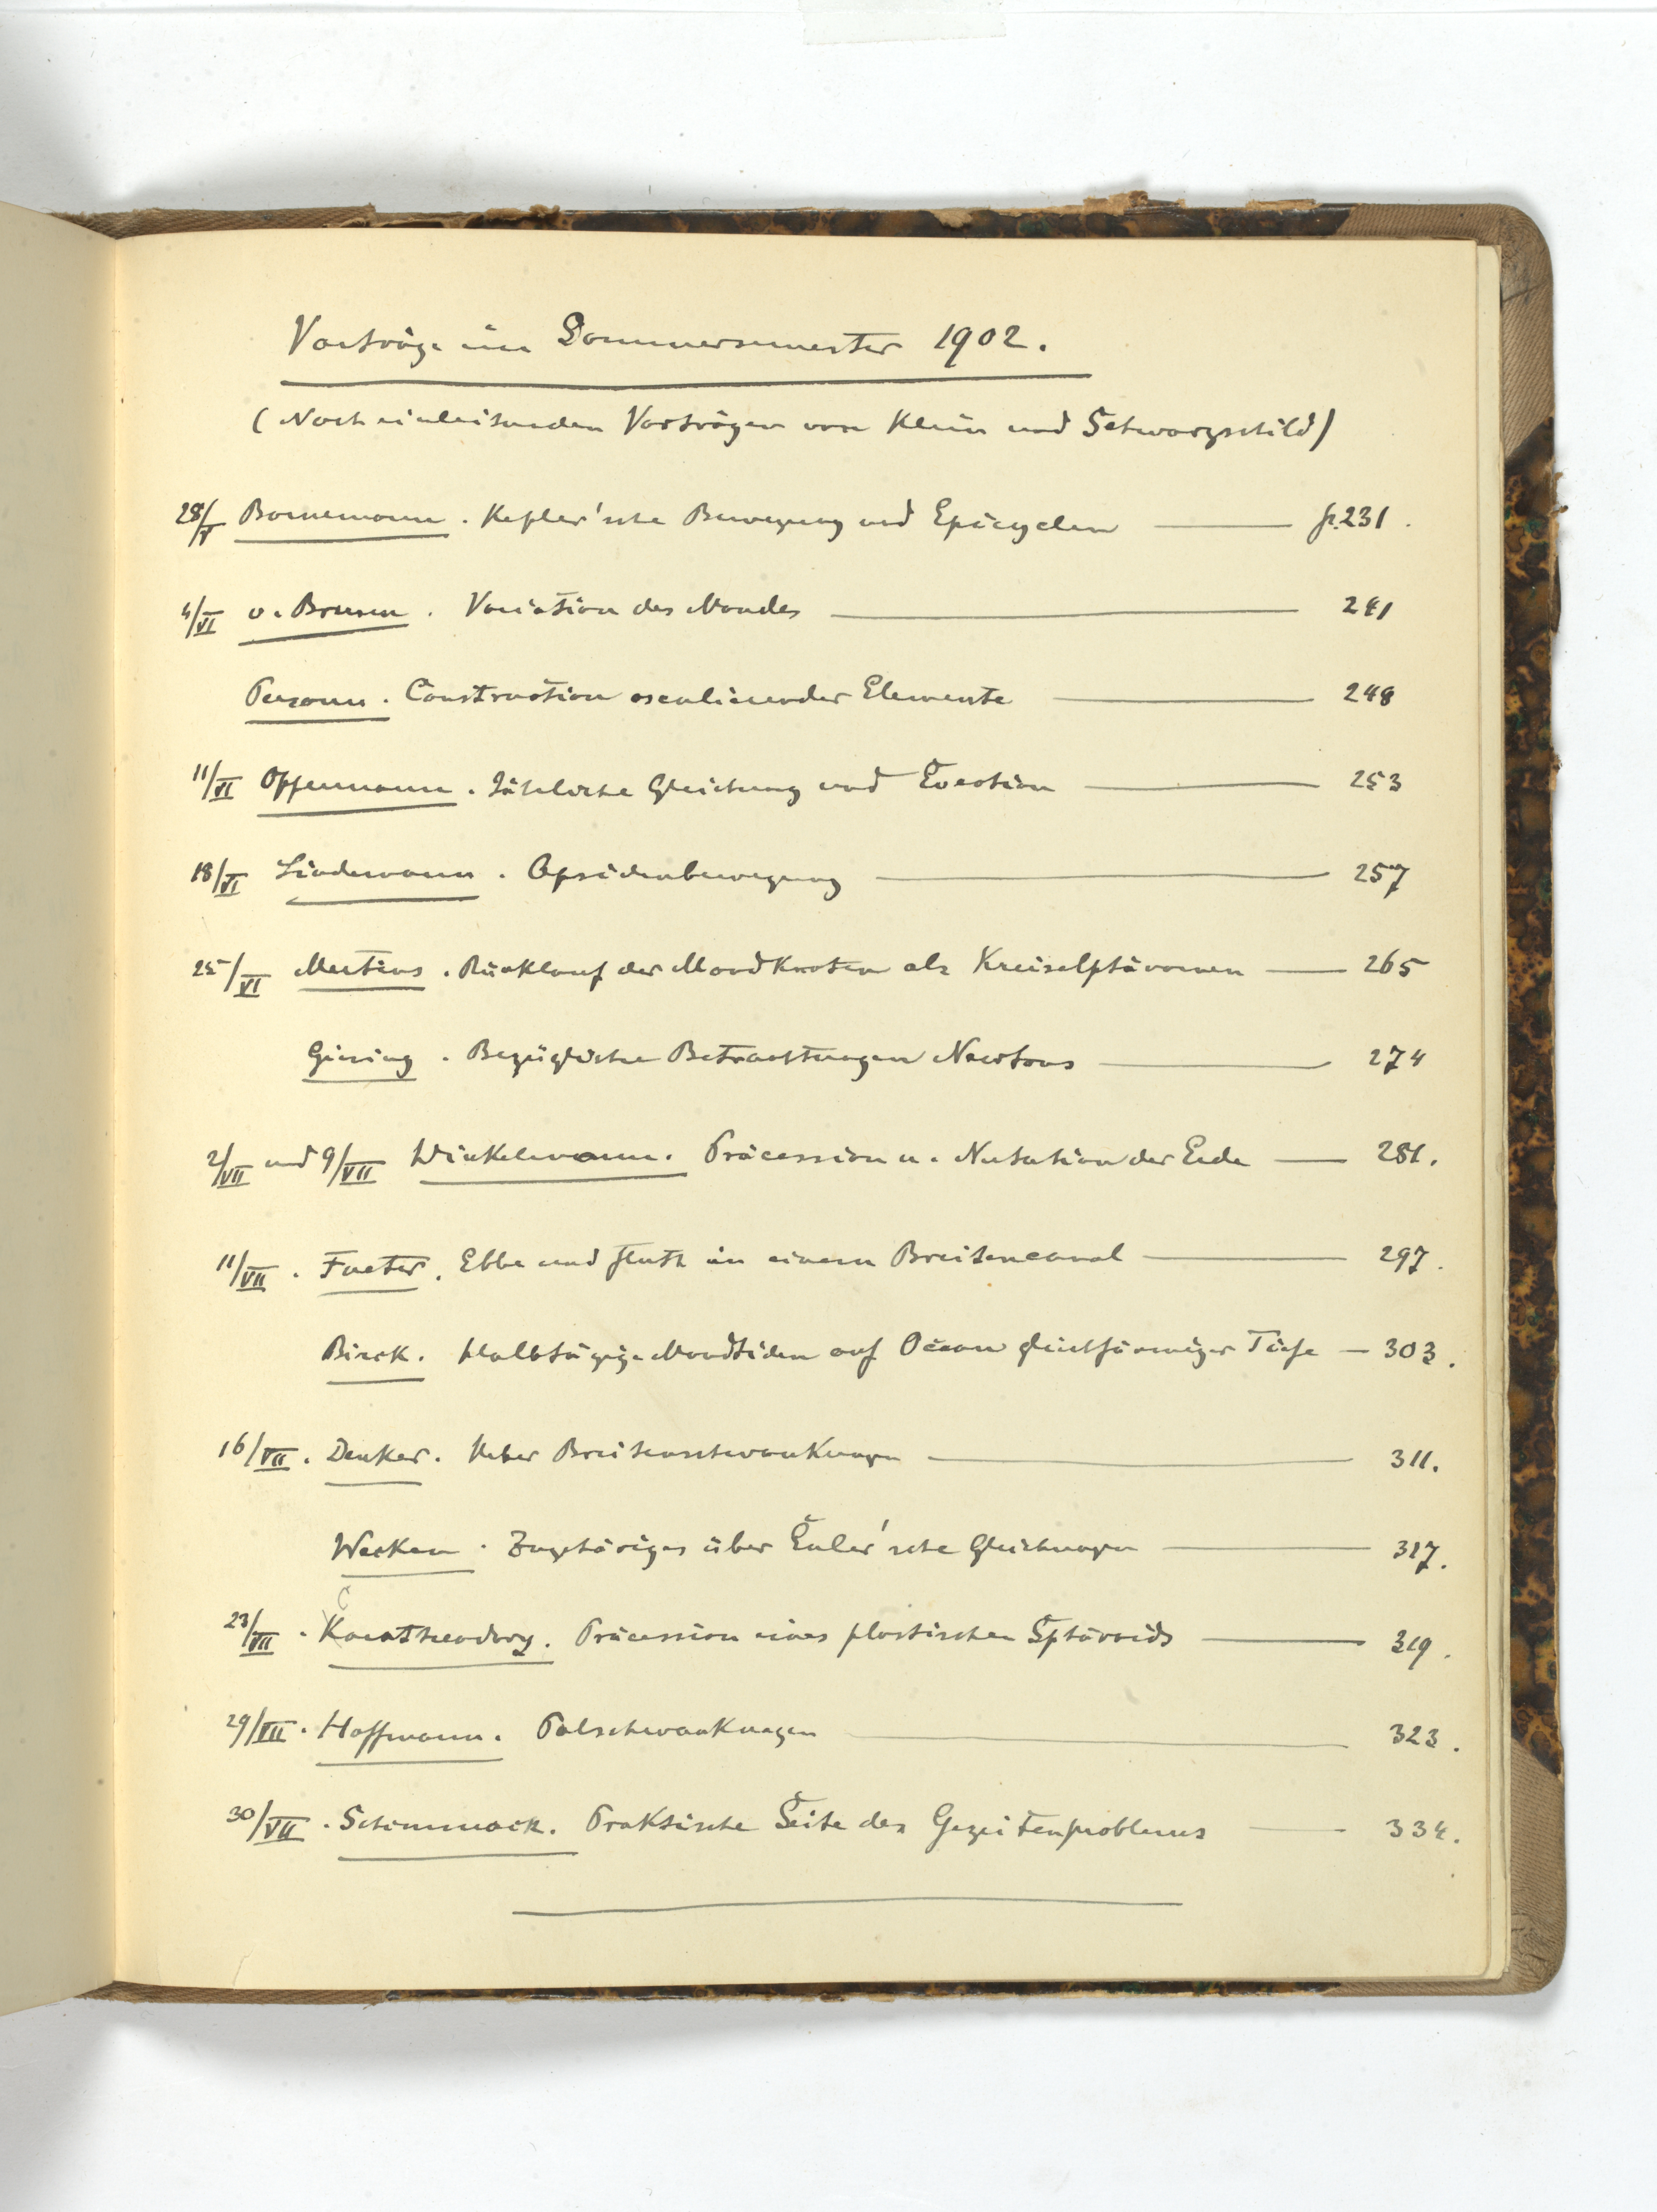 Vorträge im Sommersemester 1902.
(Nach einleitenden Vorträgen von Klein und Schwarzschild)
28/V Bornemann. Kepler'sche Bewegung und Epicyclen — p.231.
4/VI v. Brunn. Variation des Mondes — 241
Construction osculierender Elemente — 248
11/VI Opfermann. Jährliche Gleichung und Evection — 253
18/VI Lindemann. Apsidenbewegung — 257
25/VI Mertens. Rücklauf der Mondknoten als Kreiselphänomen — 265
Giesing. Bezügliche Betrachtungen Newtons — 274
2/VII und 9/VII Winkelmann. Präcession u. Nutation der Erde — 281.
11/VII. Fueter. Ebbe und Fluth in einem Breitencanal — 297.
Birck. Halbtägige Mondtiden auf Ocean gleichförmiger Tiefe — 303.
16/VII. Denker. Ueber Breitenschwankungen — 311.
Wecken. Zugehöriges über Euler'sche Gleichungen — 317.
23/VII. Karatheodory. Präcession eines plastischen Sphäroids — 319.
29/VII. Hoffmann. Polschwankungen — 323.
30/VII. Schimmack. Praktische Seite des Gezeitenproblems — 334.